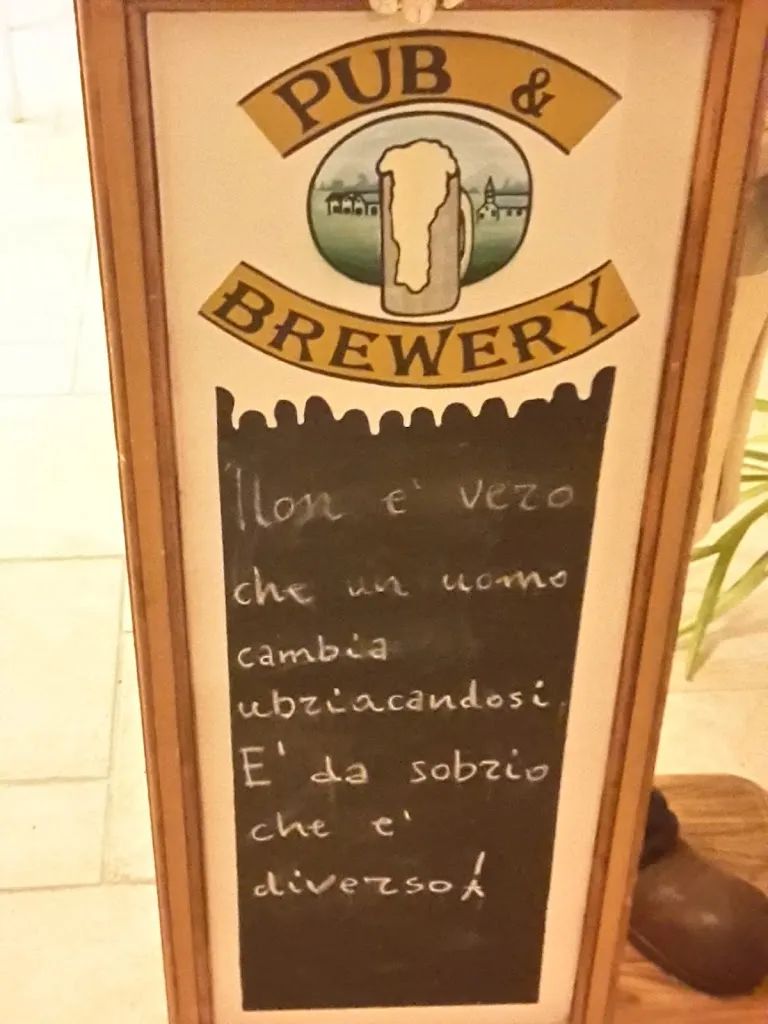 PUB &
BREWERY
Non e' vero
che un uomo
cambia
ubriacandosi.
E' da sobrio
che e'
diverso!